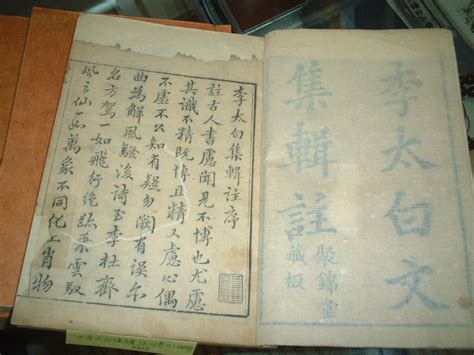 李太白文
集輯註
聚錦堂
藏板
李太白集輯註序
註古人書慮聞見不博也尤慮
其識不精既博且精又慮心偶
不虛不公知有疑勿闕有誤尔
曲為解風騷後詩至李杜齊
名方駕一如飛行絶跡乘雲馭
風之仙一如萬象不同化工肖物